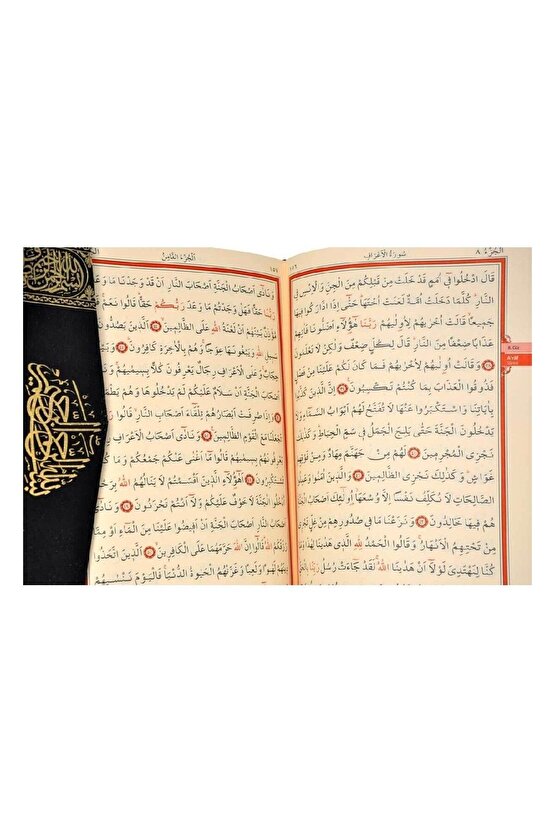 الجزء ٨
سورة الأعراف
قَالَ ادْخُلُوا فِي أُمَمٍ قَدْ خَلَتْ مِنْ قَبْلِكُمْ مِنَ الْجِنِّ وَالْإِنْسِ فِي
النَّارِ كُلَّمَا دَخَلَتْ أُمَّةٌ لَعَنَتْ أُخْتَهَا حَتَّى إِذَا ادَّارَكُوا فِيهَا
جَمِيعًا قَالَتْ أُخْرَيهُمْ لِأُولَيهُمْ رَبَّنَا هَؤُلَاءِ أَضَلُّونَا فَآتِهِمْ
عَذَابًا ضِعْفًا مِنَ النَّارِ قَالَ لِكُلٍّ ضِعْفٌ وَلَكِنْ لَا تَعْلَمُونَ
وَقَالَتْ أُولَيهُمْ لِأُخْرَيهُمْ فَمَا كَانَ لَكُمْ عَلَيْنَا مِنْ فَضْلٍ
فَذُوقُوا الْعَذَابَ بِمَا كُنْتُمْ تَكْسِبُونَ إِنَّ الَّذِينَ كَذَّبُوا
بِآيَاتِنَا وَاسْتَكْبَرُوا عَنْهَا لَا تُفَتَّحُ لَهُمْ أَبْوَابُ السَّمَاءِ وَلَا
يَدْخُلُونَ الْجَنَّةَ حَتَّى يَلِجَ الْجَمَلُ فِي سَمِّ الْخِيَاطِ وَكَذَلِكَ
نَجْزِي الْمُجْرِمِينَ لَهُمْ مِنْ جَهَنَّمَ مِهَادٌ وَمِنْ فَوْقِهِمْ
غَوَاشٍ وَكَذَلِكَ نَجْزِي الظَّالِمِينَ وَالَّذِينَ آمَنُوا وَعَمِلُوا
الصَّالِحَاتِ لَا نُكَلِّفُ نَفْسًا إِلَّا وُسْعَهَا أُولَئِكَ أَصْحَابُ الْجَنَّةِ
هُمْ فِيهَا خَالِدُونَ وَنَزَعْنَا مَا فِي صُدُورِهِمْ مِنْ غِلٍّ تَجْرِي
مِنْ تَحْتِهِمُ الْأَنْهَارُ وَقَالُوا الْحَمْدُ لِلَّهِ الَّذِي هَدَينَا لِهَذَا وَمَا
كُنَّا لِنَهْتَدِيَ لَوْلَا أَنْ هَدَينَا اللَّهُ لَقَدْ جَاءَتْ رُسُلُ رَبِّنَا بِالْحَقِّ
8.Cüz
A'râf
الجزء الثامن
وَنَادَى أَصْحَابُ الْجَنَّةِ أَصْحَابَ النَّارِ أَنْ قَدْ وَجَدْنَا مَا وَعَدَنَا
رَبُّنَا حَقًّا فَهَلْ وَجَدْتُمْ مَا وَعَدَ رَبُّكُمْ حَقًّا قَالُوا نَعَمْ
بَيْنَهُمْ أَنْ لَعْنَةُ اللَّهِ عَلَى الظَّالِمِينَ الَّذِينَ يَصُدُّونَ
سَبِيلِ اللَّهِ وَيَبْغُونَهَا عِوَجًا وَهُمْ بِالْآخِرَةِ كَافِرُونَ
وَعَلَى الْأَعْرَافِ رِجَالٌ يَعْرِفُونَ كُلًّا بِسِيمَيهُمْ
أَصْحَابَ الْجَنَّةِ أَنْ سَلَامٌ عَلَيْكُمْ لَمْ يَدْخُلُوهَا وَهُمْ
وَإِذَا صُرِفَتْ أَبْصَارُهُمْ تِلْقَاءَ أَصْحَابِ النَّارِ قَالُوا
تَجْعَلْنَا مَعَ الْقَوْمِ الظَّالِمِينَ وَنَادَى أَصْحَابُ الْأَعْرَافِ
يَعْرِفُونَهُمْ بِسِيمَيهُمْ قَالُوا مَا أَغْنَى عَنْكُمْ جَمْعُكُمْ وَمَا
تَسْتَكْبِرُونَ أَهَؤُلَاءِ الَّذِينَ أَقْسَمْتُمْ لَا يَنَالُهُمُ اللَّهُ بِرَحْمَةٍ
الْجَنَّةَ لَا خَوْفٌ عَلَيْكُمْ وَلَا أَنْتُمْ تَحْزَنُونَ وَنَادَى
أَصْحَابُ النَّارِ أَصْحَابَ الْجَنَّةِ أَنْ أَفِيضُوا عَلَيْنَا مِنَ الْمَاءِ أَوْ مِمَّا
رَزَقَكُمُ اللَّهُ قَالُوا إِنَّ اللَّهَ حَرَّمَهُمَا عَلَى الْكَافِرِينَ الَّذِينَ اتَّخَذُوا
دِينَهُمْ لَهْوًا وَلَعِبًا وَغَرَّتْهُمُ الْحَيَوةُ الدُّنْيَا فَالْيَوْمَ نَنْسَيهُمْ